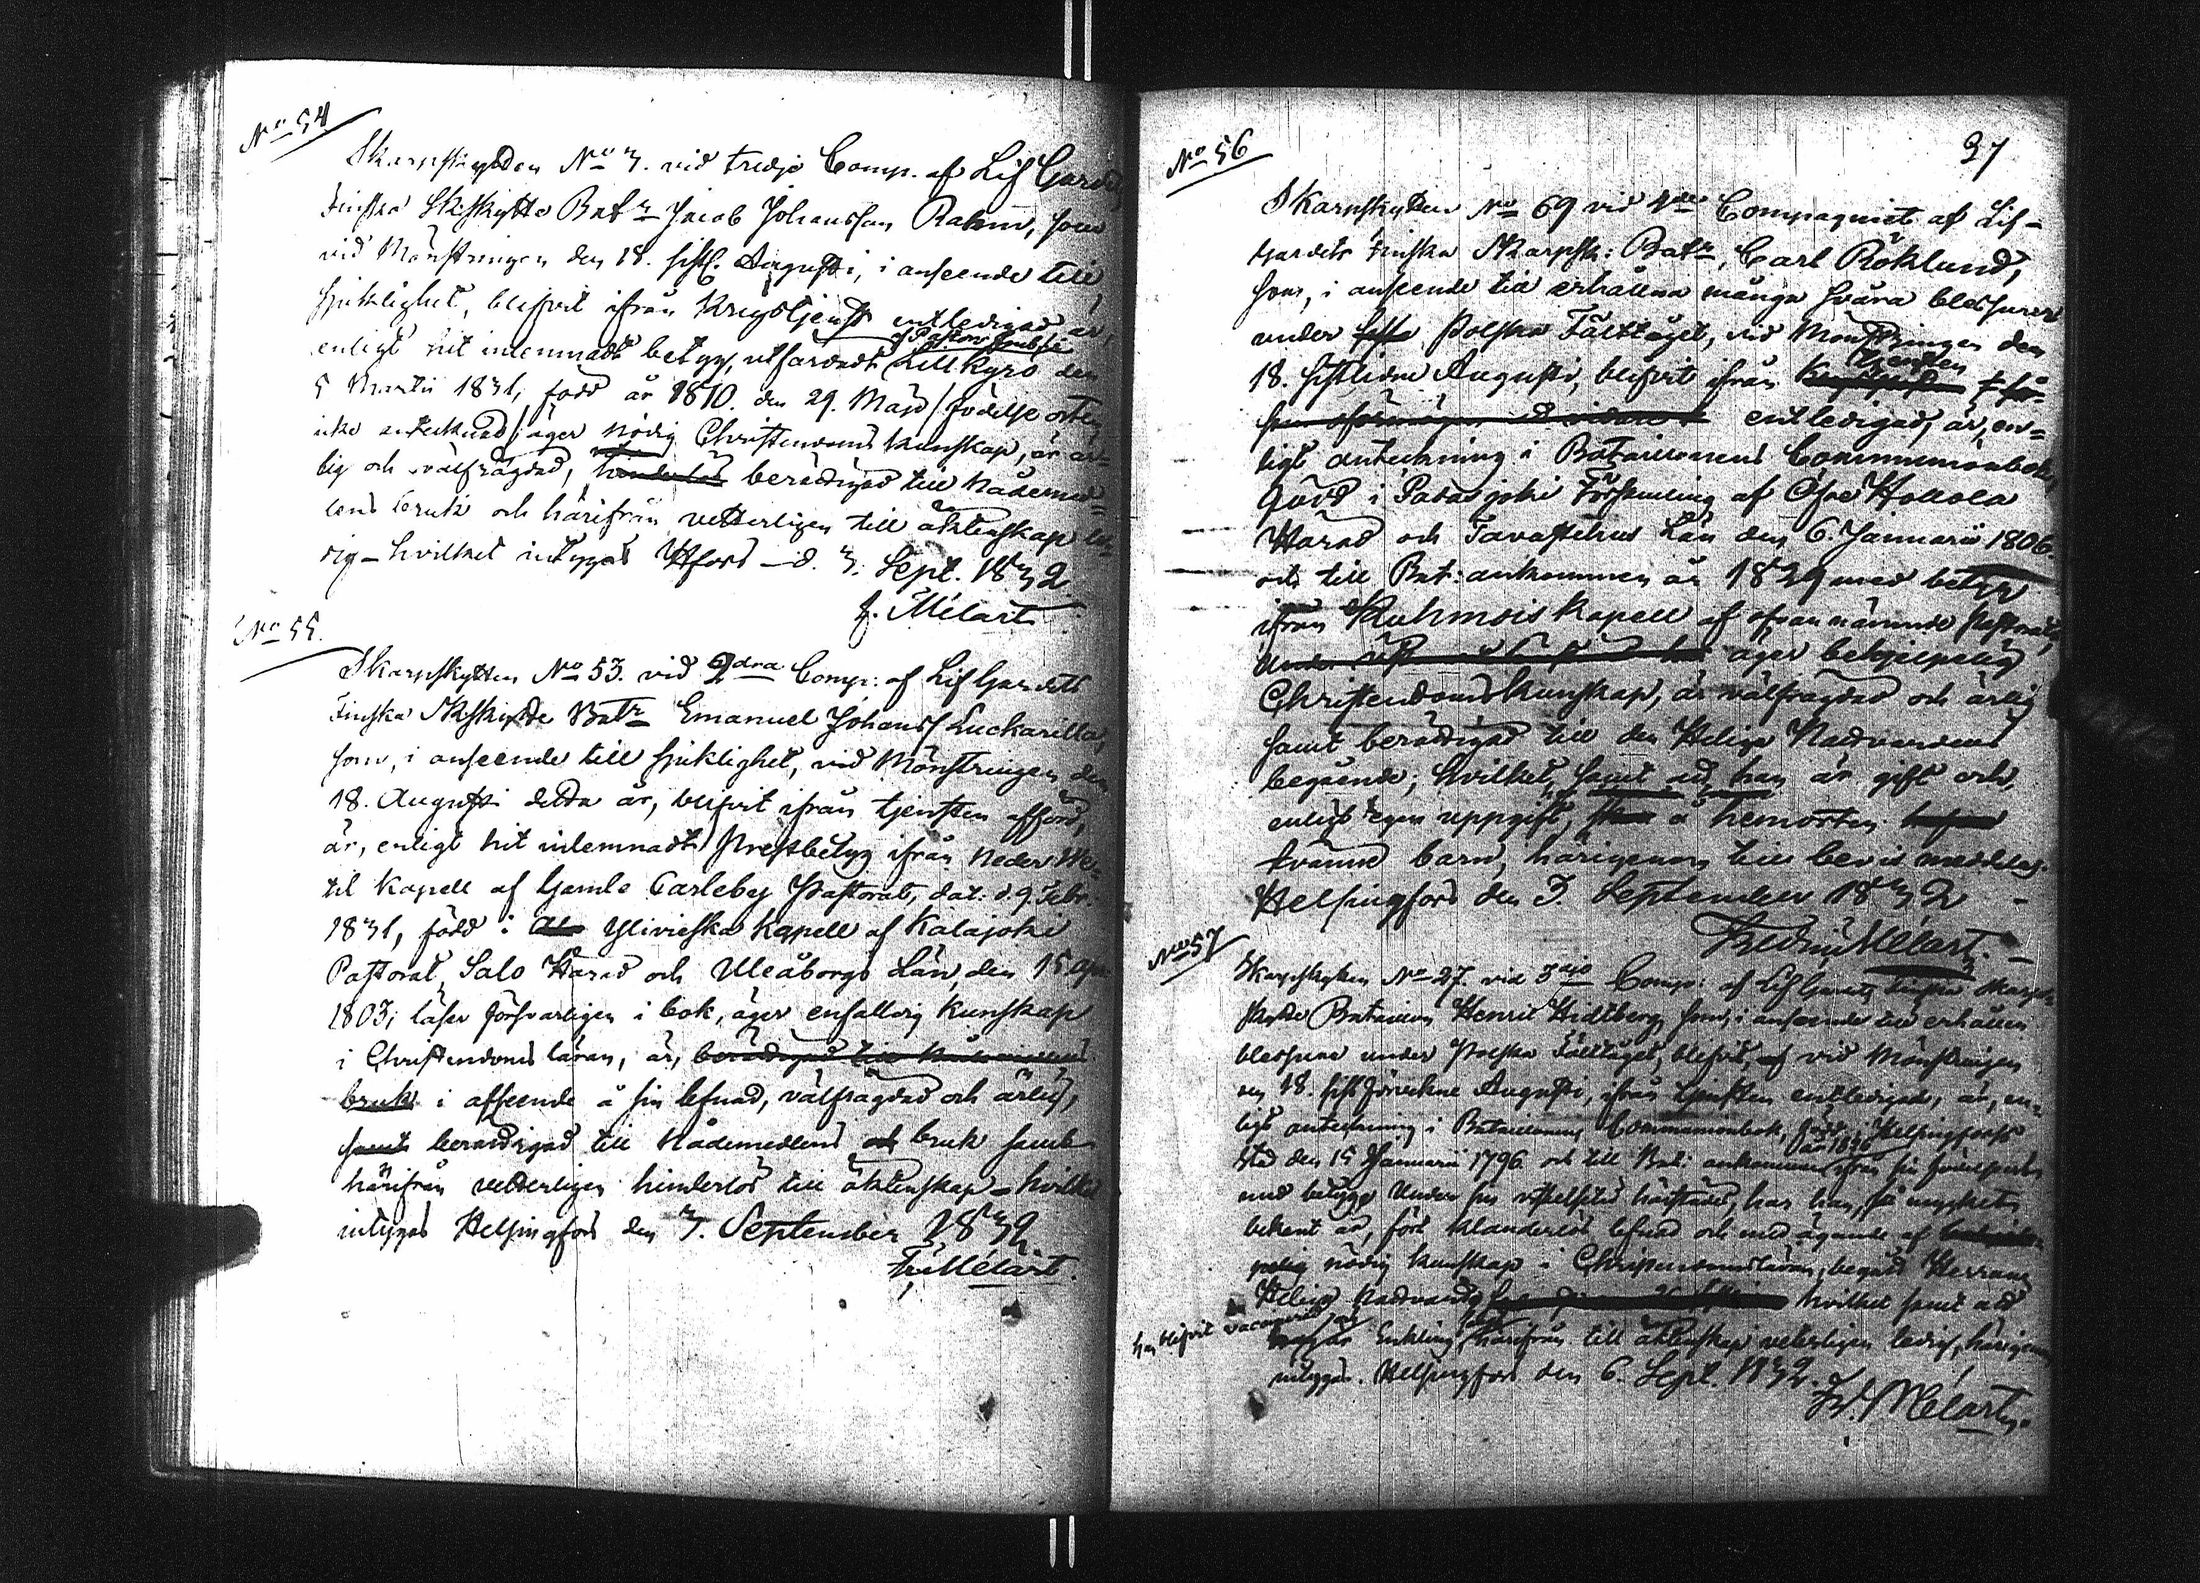 No 54
Skarpskytten No 3. vid tredje Comp. af Lif Gardets
Finska Skskytte Batn Jacob Johansson Rahm, som
vid Mönstringen den 18. sistl. Augusti, i anseende till
sjuklighet, blifvit ifrån Krigstjenst entledigad, är,
enligt hit inlemnadt betyg, utfärdadt i Lillkyro den
5 Martii 1831, född år 1810. den 29. Mars / födelse orten
icke antecknad / äger nödig Christendoms kunskap, är är=
lig och välfrägdad, berättigad till Nådemed=
lens bruk och härifrån vetterligen till äktenskap le=
dig – hvilket intygas Hfors – d. 3. Sept. 1832.
F. Mélart
No 55.
Skarpskytten No 53. vid 2dra Comp: af Lif Gardets
Finska Skskytte Batn Emanuel Johanss Luckarilla,
som, i anseende till sjuklighet, vid Mönstringen den
18. Augusti detta år, blifvit ifrån tjensten afförd,
är, enligt hit inlemnadt Prestbetyg ifrån Neder We=
til Kapell af Gamle Carleby Pastorat, dat: d. 9 Febr.
1831, född i Ylivieska Kapell af Kalajoki
Pastorat, Salo Härad och Uleåborgs Län, den 15 Apr
1803; läser försvarligen i bok, äger enfaldig kunskap
i Christendoms läran, är, berättigad till Nådemedlens
bruk i afseende å sin lefnad, välfrägdad och ärlig,
samt berättigad till Nådemedlens bruk samt
härifrån vetterligen hinderlös till äktenskap – hvilket
intygas Helsingfors den 3. September 1832.
Fr. Mélart.
37
No 56
Skarpskytten No 69 vid Compagniet af Lif=
Gardets Finska Skarpsk: Batn, Carl Röklund,
som, i anseende till erhållna många svåra blessurer
under Polska Fälttåget, vid Mönstringen den
18. sistlidne Augusti, blifvit ifrån tjensten
entledigad, är, en=
ligt anteckning i Bataillonens Communionbok,
född i Padasjoki Församling af Öfre Hollola
Härad och Tavastehus Län den 6. Januarii 1806.
och till Bat: ankommen år 1829 med betyg
ifrån Kuhmois Kapell af ofvannämnde Pastorat,
äger behjelpelig
Christendoms kunskap, är välfrägdad och ärlig
samt berättigad till den Heliga Nattvardens
begående; hvilket, samt att han är gift och,
enligt egen uppgift, å hemorten
tvänne barn, härigenom till bevis meddelas.
Helsingfors den 3. September 1832
Fredric Mélart.
No 57
Skarpskytten No 27. vid 3dje Comp: af Lif Gardets Finska Skarp=
skytte Bataillon Henric Hidtberg, som, i anseende till erhållen
blessure under Polska Fälttåget, blifvit, vid Mönstringen
den 18. sistförvekne Augusti, ifrån tjensten entledigad, är, en=
ligt anteckning i Bataillonens Communionbok, född i Helsingfors
Stad den 15 Januarii 1796 och till Bat: ankommen ifrån sin födelseort
med betyg. Under sin vistelsetid härstädes, har han, så mycket
bekant är, fört klanderlös lefnad och med ägande af
nödig kunskap i Christendomsläran, begått Herrans
Heliga Nattvard, hvilket samt att
han blifvit Enkling, härifrån till äktenskap vetterligen ledig, härigenom
intygas. Helsingfors den 6. Sept. 1832.
Fr. Mélart.